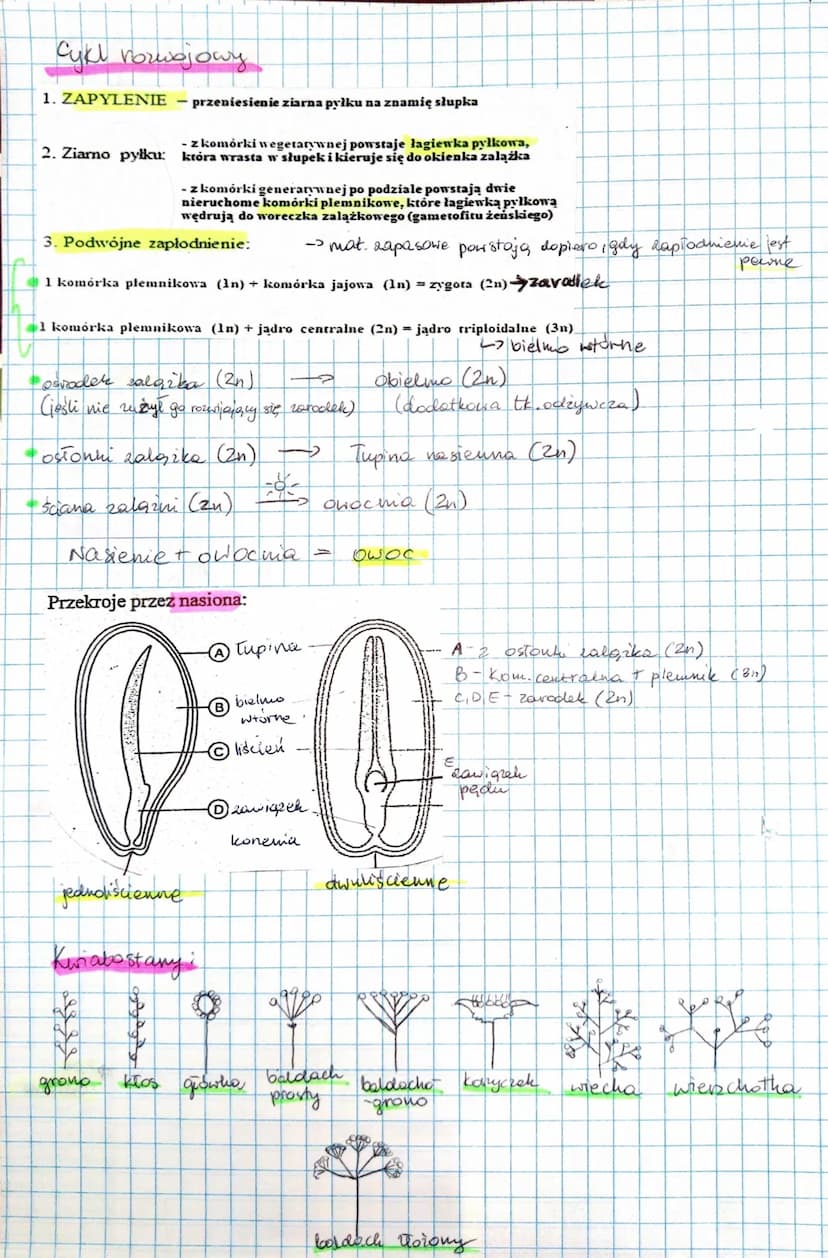 Cykl rozwojowy
1. ZAPYLENIE – przeniesienie ziarna pyłku na znamię słupka
2. Ziarno pyłku: - z komórki wegetatywnej powstaje łagiewka pyłkowa,
która wrasta w słupek i kieruje się do okienka zalążka
- z komórki generatywnej po podziale powstają dwie
nieruchome komórki plemnikowe, które łagiewką pyłkową
wędrują do woreczka zalążkowego (gametofitu żeńskiego)
3. Podwójne zapłodnienie: → mat. zapasowe powstają dopiero, gdy zapłodnienie jest
pewne
1 komórka plemnikowa (1n) + komórka jajowa (1n) = zygota (2n) → zarodek
1 komórka plemnikowa (1n) + jądro centralne (2n) = jądro triploidalne (3n)
↳ bielmo wtórne
ośrodek zalążka (2n) → obielmo (2n)
(jeśli nie zużył go rozwijający się zarodek) (dodatkowa tk. odżywcza)
osłonki zalążka (2n) → Łupina nasienna (2n)
ściana zalążni (2n) → owocnia (2n)
Nasienie + owocnia = owoc
Przekroje przez nasiona:
A Łupina
B bielmo
wtórne
C liścień
D zawiązek
korzenia
A - z osłonki zalążka (2n)
B - kom. centralna + plemnik (3n)
C, D, E - zarodek (2n)
E
zawiązek
pędu
jednoliścienne
dwuliścienne
Kwiatostany:
grono kłos główka baldach
prosty
baldacho-
-grono
koszyczek wiecha wierzchotka
baldach złożony